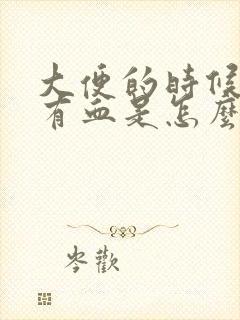 大便的時候
有血是怎麼
岑歡